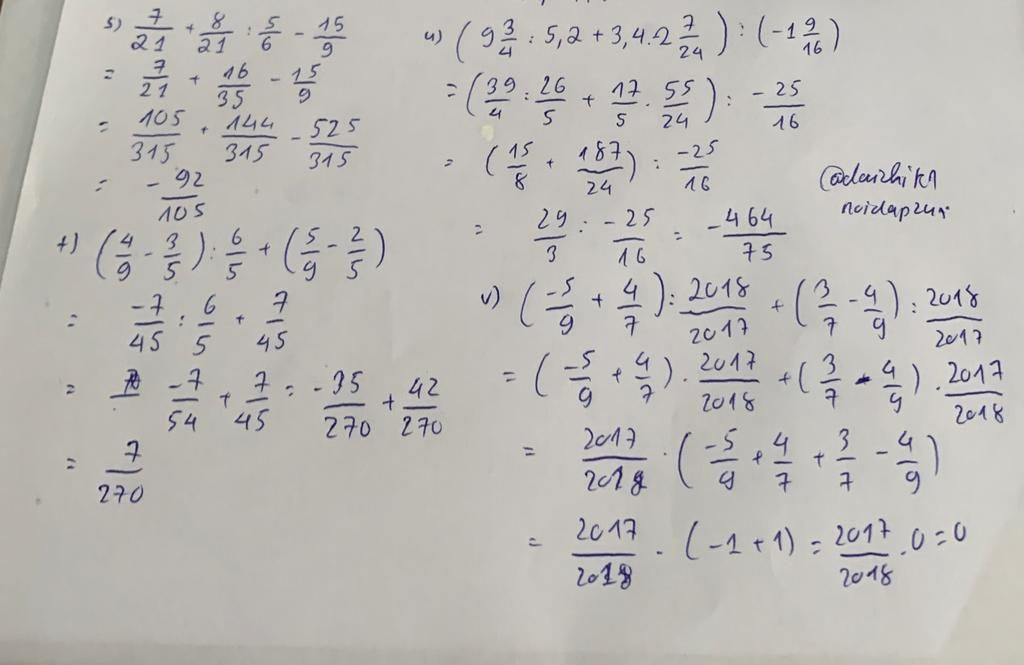 s) 7/21 + 8/21 : 5/6 - 15/9
= 7/21 + 16/35 - 15/9
= 105/315 + 144/315 - 525/315
= -92/105
t) (4/9 - 3/5) : 6/5 + (5/9 - 2/5)
= -7/45 : 6/5 + 7/45
= -7/54 + 7/45 = -35/270 + 42/270
= 7/270
u) (9 3/4 : 5,2 + 3,4 . 2 7/24) : (-1 9/16)
= (39/4 : 26/5 + 17/5 . 55/24) : -25/16
= (15/8 + 187/24) : -25/16
= 29/3 : -25/16 = -464/75
v) (-5/9 + 4/7) : 2018/2017 + (3/7 - 4/9) : 2018/2017
= (-5/9 + 4/7) . 2017/2018 + (3/7 - 4/9) . 2017/2018
= 2017/2018 . (-5/9 + 4/7 + 3/7 - 4/9)
= 2017/2018 . (-1 + 1) = 2017/2018 . 0 = 0